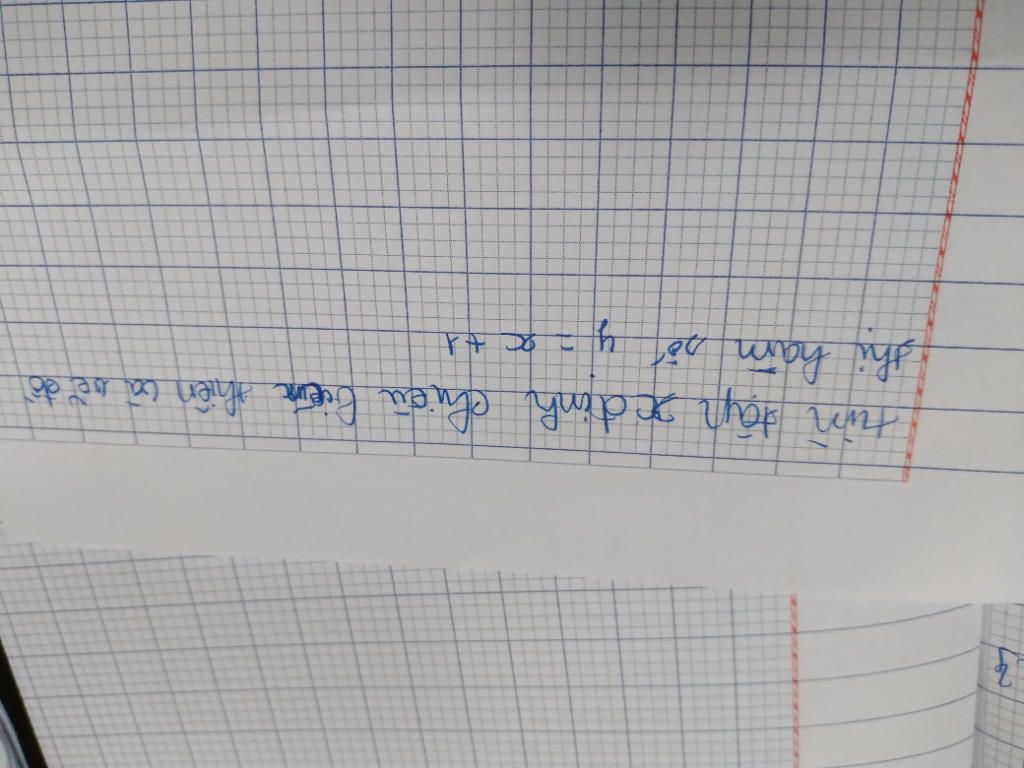 tìm tập xđịnh chiều biến thiên và vẽ đồ
thị hàm số y = x + 1